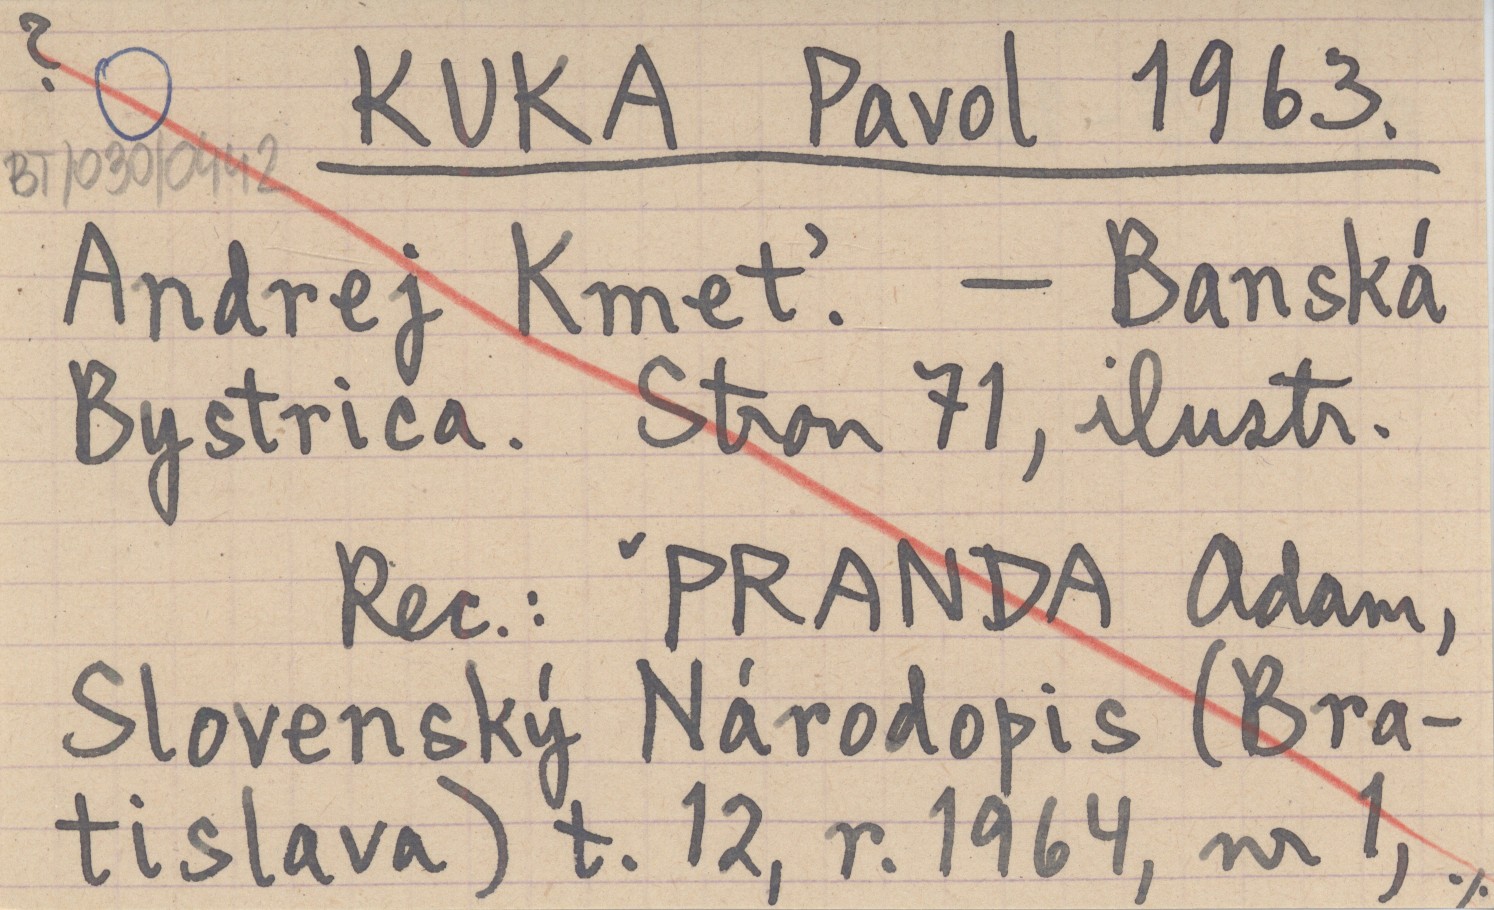 ?
KUKA Pavol 1963.
BT/030/0442
Andrej Kmeť. — Banská
Bystrica. Stron 71, ilustr.
Rec.: ˇPRANDA Adam,
Slovenský Národopis (Bra-
tislava) t. 12, r. 1964, nr 1,
./.